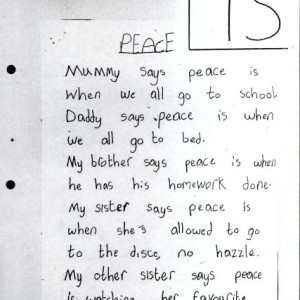 15
PEACE
Mummy says peace is
when we all go to school.
Daddy says peace is when
we all go to bed.
My brother says peace is when
he has his homework done.
My sister says peace is
when she's allowed to go
to the disco, no hazzle.
My other sister says peace
is watching her favourite